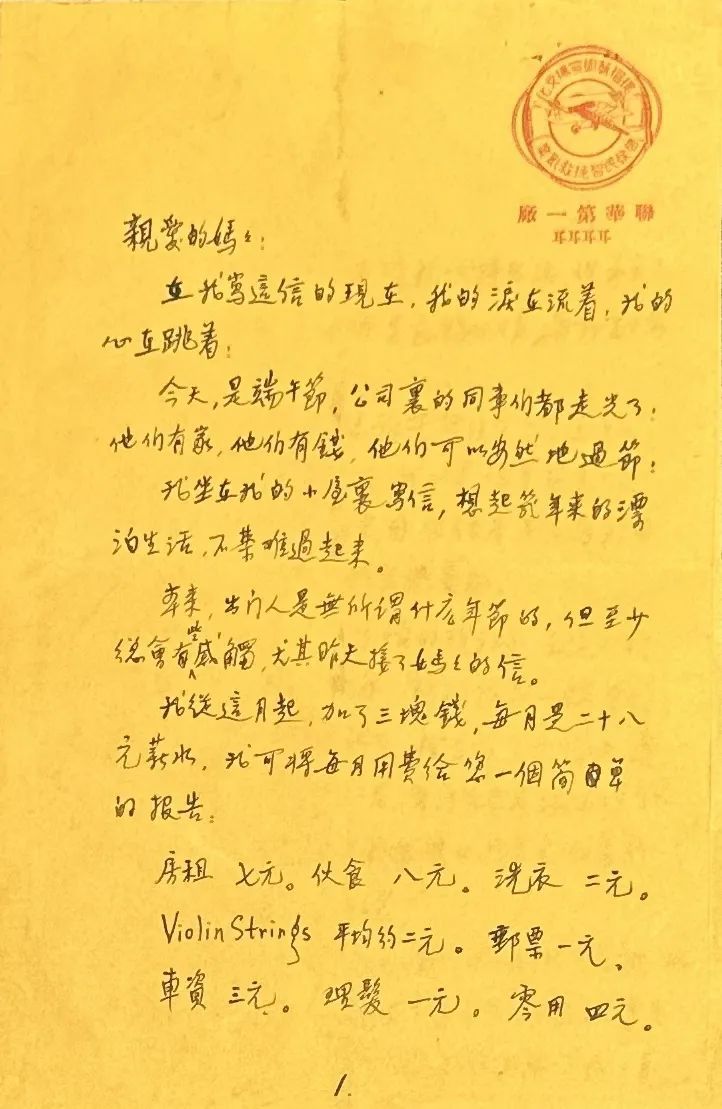 聯華第一廠
親愛的媽々：
在我寫這信的現在，我的淚在流着，我的
心在跳着；
今天，是端午節，公司裏的同事们都走光了；
他们有家，他们有錢，他们可以安然地過節；
我坐在我的小屋裏寫信，想起幾年來的漂
泊生活，不禁难過起来。
本来，出门人是無所謂什麼年節的，但至少
總會有些感觸，尤其昨天接了媽々的信。
我從這月起，加了三塊錢，每月是二十八
元薪水，我可將每月用費給您一個简單
的报告：
房租 七元。伙食 八元。洗衣 二元。
Violin Strings 平均約二元。郵票一元、
車資 三元。理髮 一元。零用 四元。
1.